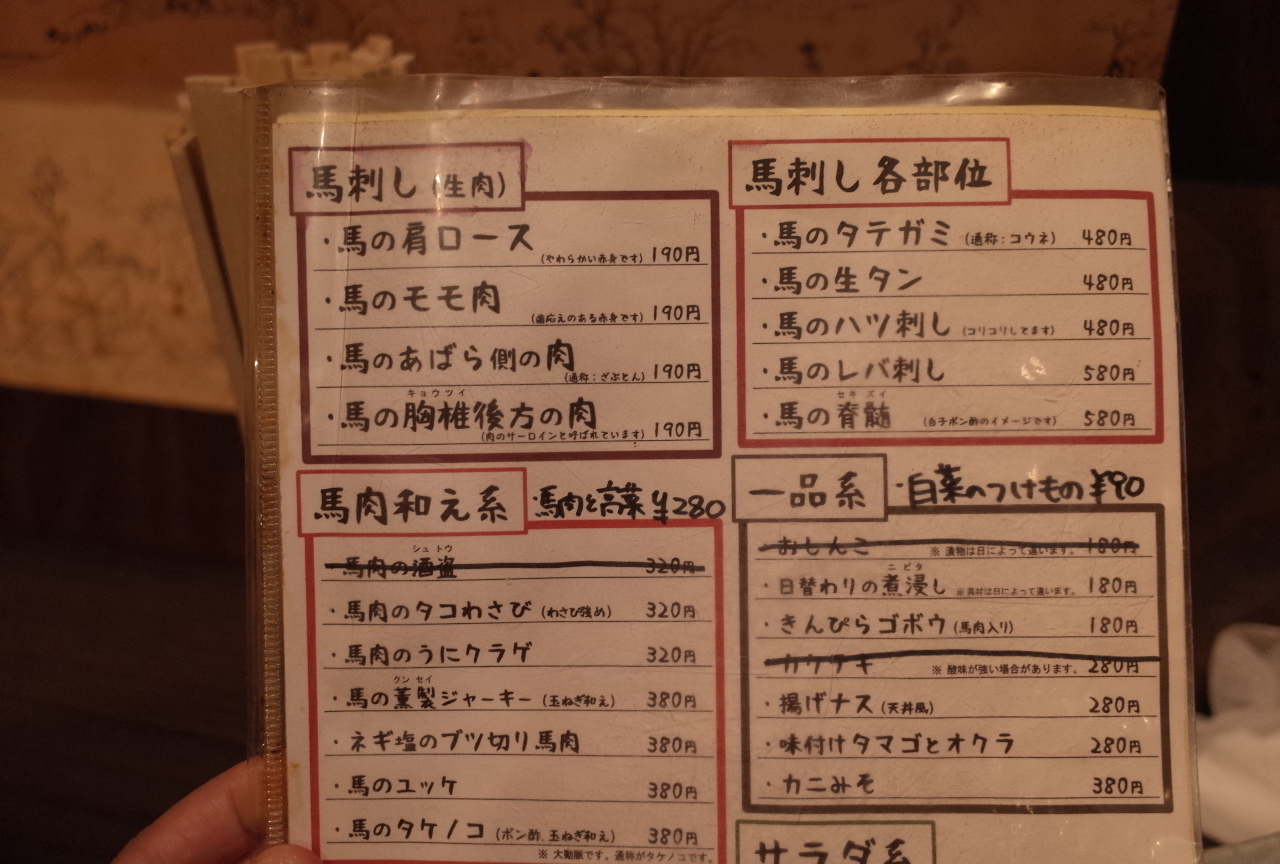 馬刺し(生肉)
・馬の肩ロース (やわらかい赤身です) 190円
・馬のモモ肉 (歯応えのある赤身です) 190円
・馬のあばら側の肉 (通称:ざぶとん) 190円
キョウツイ
・馬の胸椎後方の肉 (肉のサーロインと呼ばれています) 190円
馬刺し各部位
・馬のタテガミ (通称:コウネ) 480円
・馬の生タン 480円
・馬のハツ刺し (コリコリしてます) 480円
・馬のレバ刺し 580円
セキズイ
・馬の脊髄 (白子ポン酢のイメージです) 580円
馬肉和え系 ・馬肉と高菜 ¥280
シュトウ
・馬肉の酒盗 320円
・馬肉のタコわさび (わさび強め) 320円
・馬肉のうにクラゲ 320円
クンセイ
・馬の薫製ジャーキー (玉ねぎ和え) 380円
・ネギ塩のブツ切り馬肉 380円
・馬のユッケ 380円
・馬のタケノコ (ポン酢、玉ねぎ和え) 380円
※ 大動脈です。通称がタケノコです。
一品系 ・白菜のつけもの ¥90
おしんこ ※ 漬物は日によって違います。 180円
ニビタ
・日替わりの煮浸し ※具材は日によって違います。 180円
・きんぴらゴボウ (馬肉入り) 180円
※ 酸味が強い場合があります。 280円
・揚げナス (天丼風) 280円
・味付けタマゴとオクラ 280円
・カニみそ 380円
サラダ系